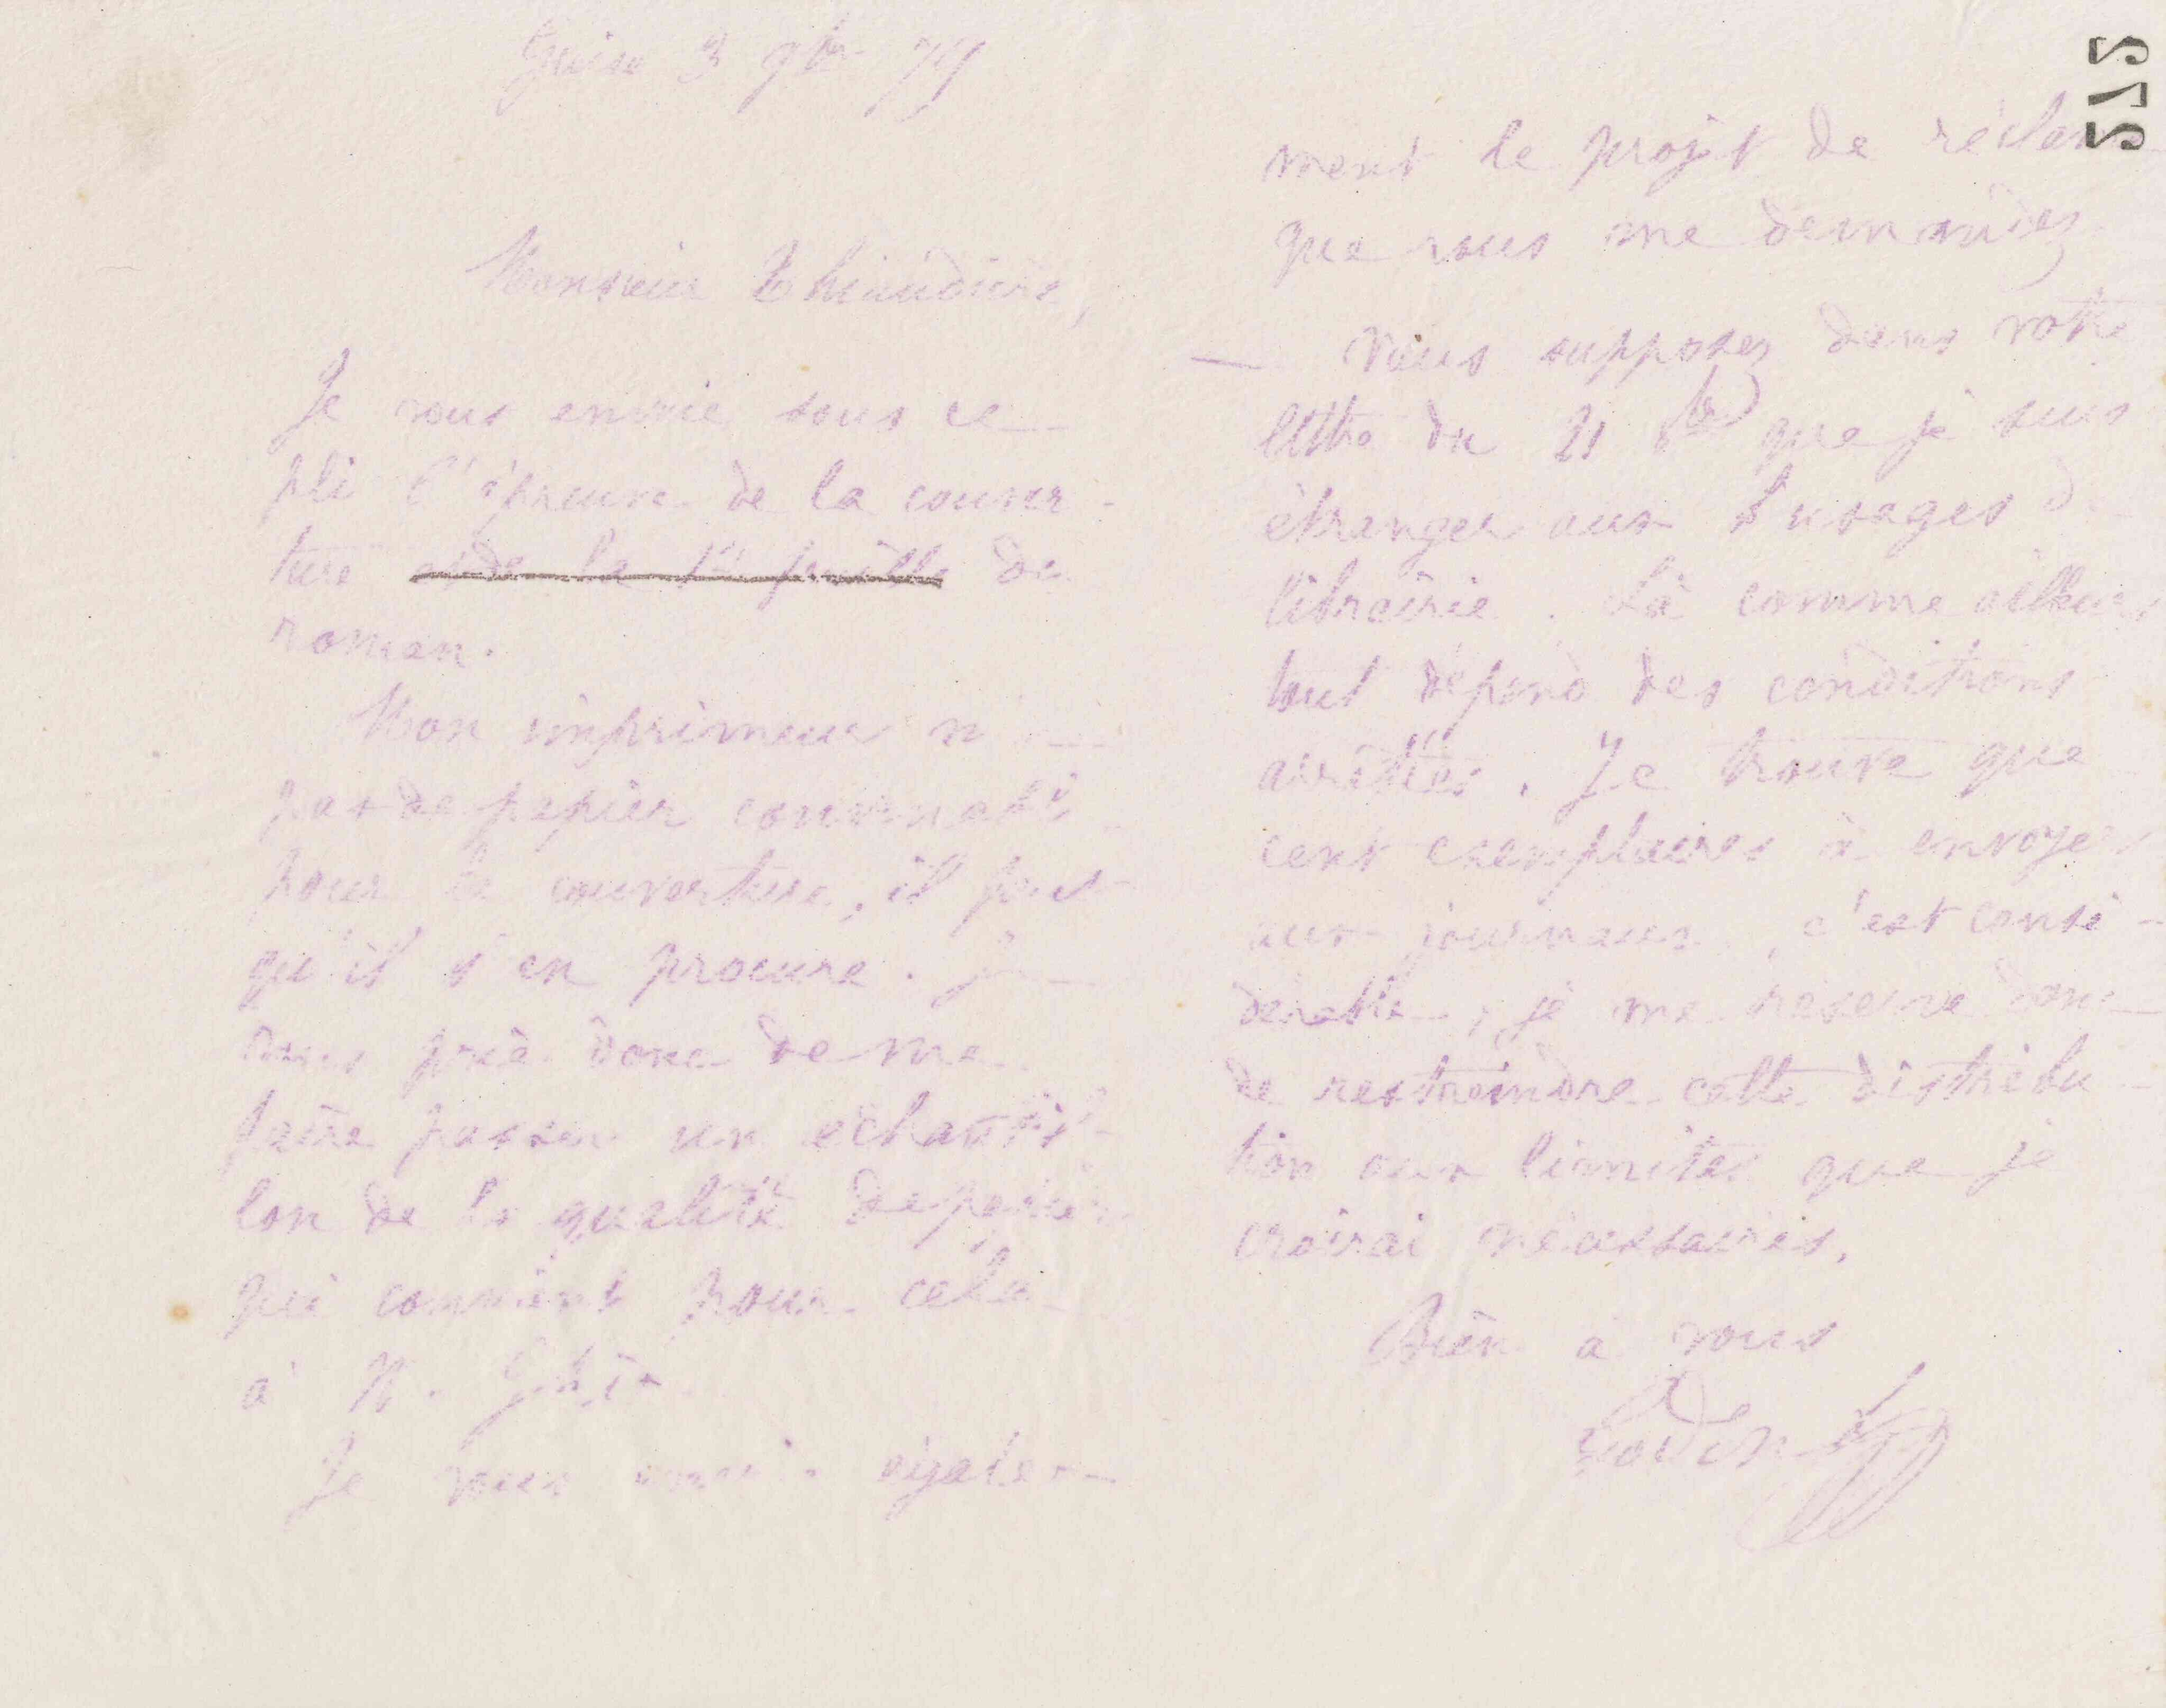 Guise 3 9bre 79
Monsieur Thiaudière,
Je vous envoie sous ce
pli l'épreuve de la couver-
ture et de la 1re feuille du
roman.
Mon imprimeur n'
pas de papier convenable
pour la couverture, il faut
qu'il s'en procure. Je
vous prie donc de me
faire passer un échantil-
lon de la qualité de papier
qui convient pour cela
à M.
Je vous envoie égale-
ment le projet de réclame
que vous me demandez
— Vous supposez dans votre
lettre du 21 8bre que je suis
étranger aux usages de
librairie. Là comme ailleurs
tout dépend des conditions
arrêtées. Je trouve que
cent exemplaires à envoyer
aux journaux, c'est consi-
dérable, je me réserve donc
de restreindre cette distribu-
tion aux limites que je
croirai nécessaires.
Bien à vous
Godin
515